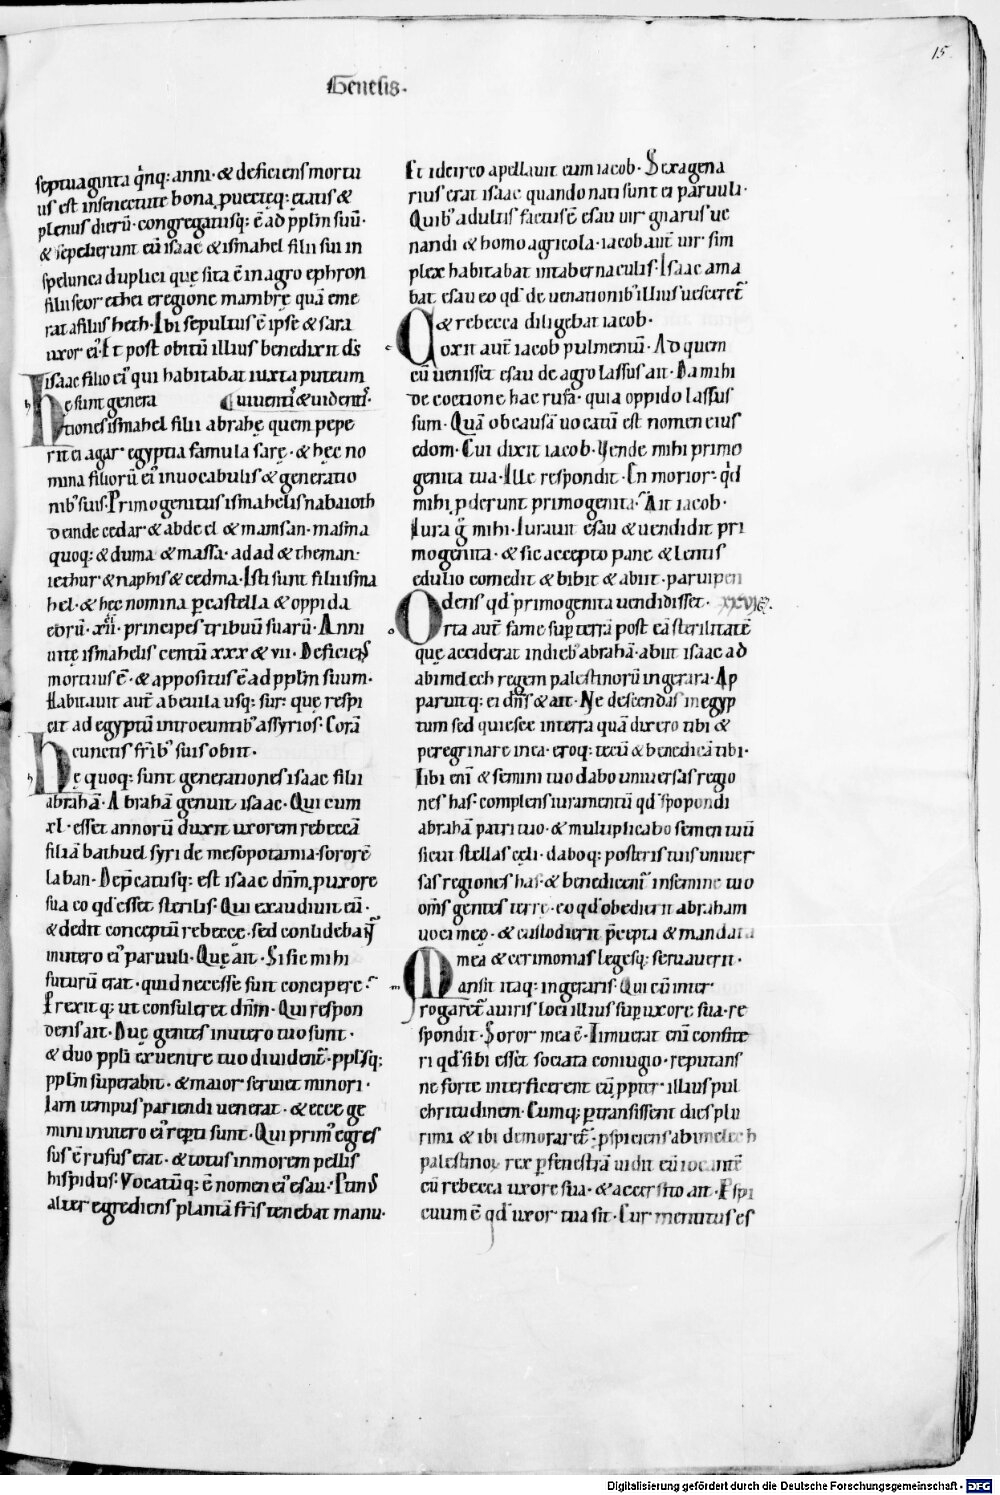 15
Genesis.
septuaginta q̇nq; anni · & deficiens mortu
us est insenectute bona, puecteq; ętatis &
plenus dierū · congregatusq; ē ad pplm suū ·
& sepelierunt eū isaac & ismahel filii sui in
spelunca duplici que sita ē in agro ephron
filii seor ethei eregione mambre quā eme
rat afiliis heth · Ibi sepultus ē ipse & sara
uxor ei᾽ · Et post obitū illius benedixit ds̄
isaac filio ei᾽ qui habitabat iuxta puteum
uiuentis & uidentis ·
He sunt genera
tiones ismahel filii abrahę quem pepe
rit ei agar egyptia famula sarę · & hęc no
mina filiorū ei᾽ inuocabulis & generatio
nib᾽ suis · Primogenitus ismahelis nabaioth
deinde cedar & abdeel & mamsan · masma
quoq; & duma & massa · adad & theman ·
iethur & naphis & cedma · Isti sunt filii isma
hel · & hęc nomina ꝑ castella & oppida
eorū · xii · principes tribuū suarū · Anni
uitę ismahelis centū xxx & vii · Deficiens
mortuus ē · & appositus ē ad pplm suum ·
Habitauit aut̄ abeuila usq; sur · que respi
cit ad egyptū introeuntib᾽ assyrios · Corā
cunctis fr̄ib᾽ suis obiit ·
He quoq; sunt generationes isaac filii
abrahā · Abrahā genuit isaac · Qui cum
xl · esset annorū duxit uxorem rebeccā
filiā bathuel syri de mesopotamia · sororē
laban · Dep̄catusq; est isaac dn̄m, p uxore
sua eo qd᾽ esset sterilis · Qui exaudiuit eū ·
& dedit conceptū rebecce · sed conlidebant᾽
inutero ei᾽ paruuli · Quę ait · Si sic mihi
futurū erat · quid necesse fuit concipere ·
Prexit q; ut consuleret dn̄m · Qui respon
dens ait · Duę gentes inutero tuo sunt ·
& duo ppli exuentre tuo diuident᾽ · pplusq;
pplm superabit · & maior seruiet minori ·
Iam tempus pariendi uenerat · & ecce ge
mini inutero ei᾽ rep̄ti sunt · Qui prim᾽ egres
sus ē rufus erat · & totus inmorem pellis
hispidus · Vocatūq; ē nomen ei᾽ esau · Ptin᾽
alter egrediens plantā fr̄is tenebat manu ·
Et idcirco apellauit eum iacob · Sexagena
rius erat isaac quando nati sunt ei paruuli ·
Quib᾽ adultis factus ē esau uir gnarus ue
nandi & homo agricola · iacob aut̄ uir sim
plex habitabat intabernaculis · Isaac ama
bat esau eo qd᾽ de uenationib᾽ illius uesceret᾽
& rebecca diligebat iacob ·
Coxit aut̄ iacob pulmentū · Ad quem
cū uenisset esau de agro lassus ait · Da mihi
de coctione hac rufa · quia oppido lassus
sum · Quā ob causā uocatū est nomen eius
edom · Cui dixit iacob · Vende mihi primo
genita tua · Ille respondit · En morior · qd᾽
mihi, p derunt primogenita · Ait iacob ·
Iura g᾽ mihi · Iurauit esau & uendidit pri
mogenita · & sic accepto pane & lentis
edulio comedit & bibit & abiit · paruipen
dens qd᾽ primogenita uendidisset · xxvi
Orta aut̄ fame sup̄ terrā post eā sterilitatē
quę acciderat indieb᾽ abrahā · abiit isaac ad
abimelech regem palestinorū ingerara · Ap
paruitq; ei dn̄s & ait · Ne descendas inegyp
tum sed quiesce interra quā dixero tibi &
peregrinare inea · eroq; tecū & benedicā tibi ·
Tibi eni᾽ & semini tuo dabo uniuersas regio
nes has · complens iuramentū qd᾽ spopondi
abrahā patri tuo · & multiplicabo semen tuū
sicut stellas cęli · daboq; posteris tuis uniuer
sas regiones has · & benedicent᾽ insemine tuo
om̄s gentes terrę · eo qd᾽ obedierit abraham
uoci meę · & custodierit p̄cepta & mandata
mea & cerimonias legesq; seruauerit ·
Mansit itaq; ingeraris · Qui cū inter
rogaret᾽ auiris loci illius sup̄ uxore sua · re
spondit · Soror mea ē · Timuerat eni᾽ confite
ri qd᾽ sibi esset sociata coniugio · reputans
ne forte interficerent eū, ppter illius pul
chritudinem · Cumq; ꝑtransissent dies plu
rimi & ibi demoraret᾽ · ꝑspiciens abimelech
palestinoꝝ rex ꝑ fenestrā uidit eū iocantē
cū rebecca uxore sua · & accersito ait · Pspi
cuum ē qd᾽ uxor tua sit · Cur mentitus es
Digitalisierung gefördert durch die Deutsche Forschungsgemeinschaft - DFG